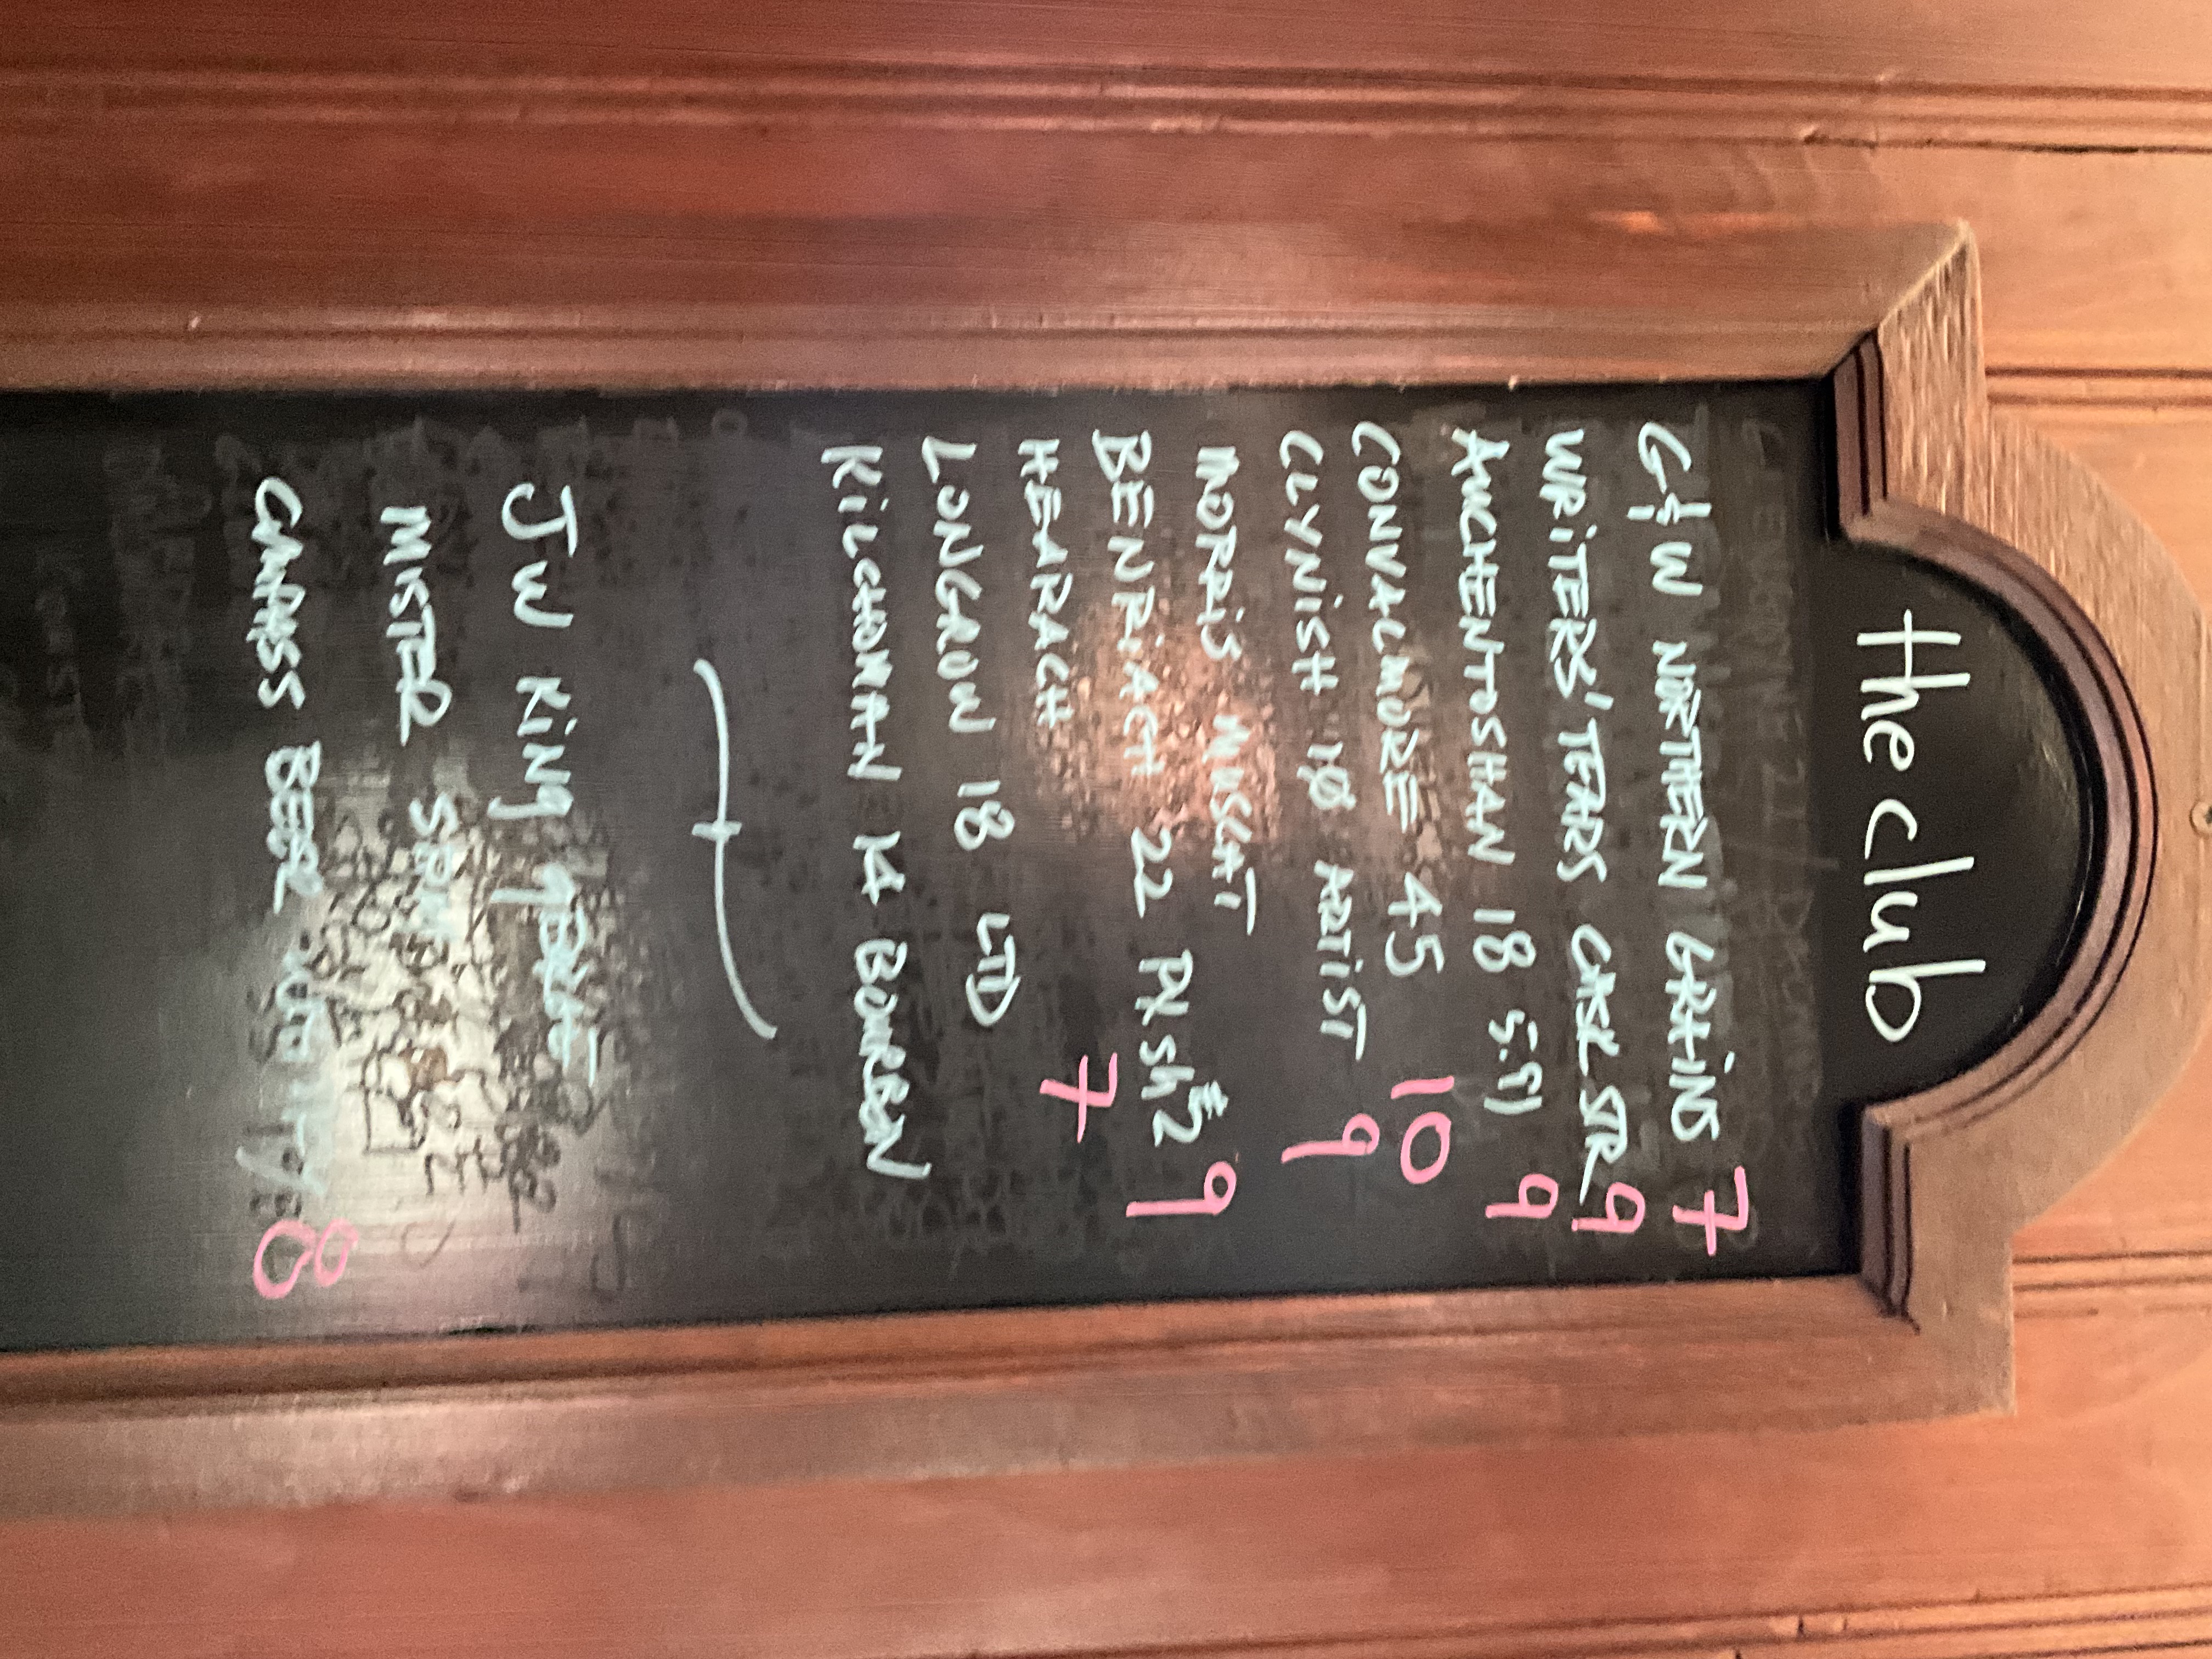 the club
G&W NORTHERN GRAINS 7
WRITERS' TEARS CASK STR 9
AUCHENTOSHAN 18 S:91 9
CONVALMORE 45 10
CLYNISH 10 ARTIST 9
MORRIS MUSCAT
BENRIACH 22 PX Sh#2 9
HEARACH 7
LONGROW 18 LTD
KiLCHOMAN 14 BOURBON
JW KiNg
MISTER SAM
BEER
8